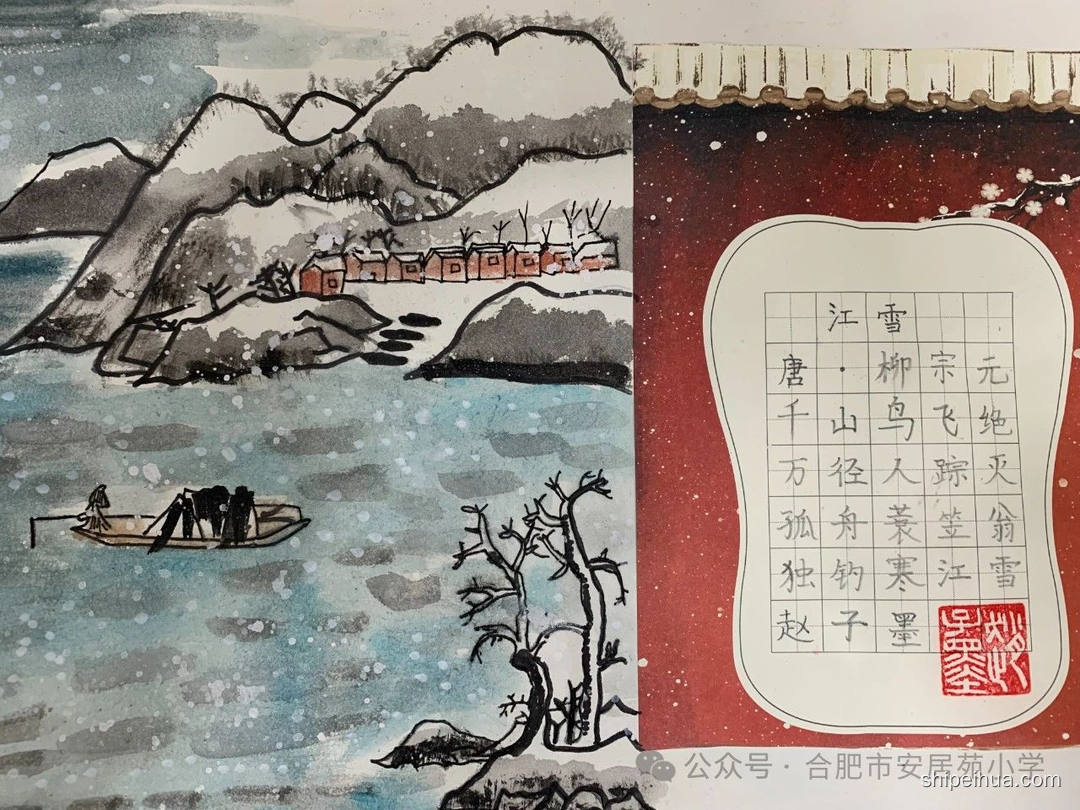 江雪
唐·柳宗元
千山鸟飞绝
万径人踪灭
孤舟蓑笠翁
独钓寒江雪
赵子墨
公众号·合肥市安居苑小学
shipeihua.com